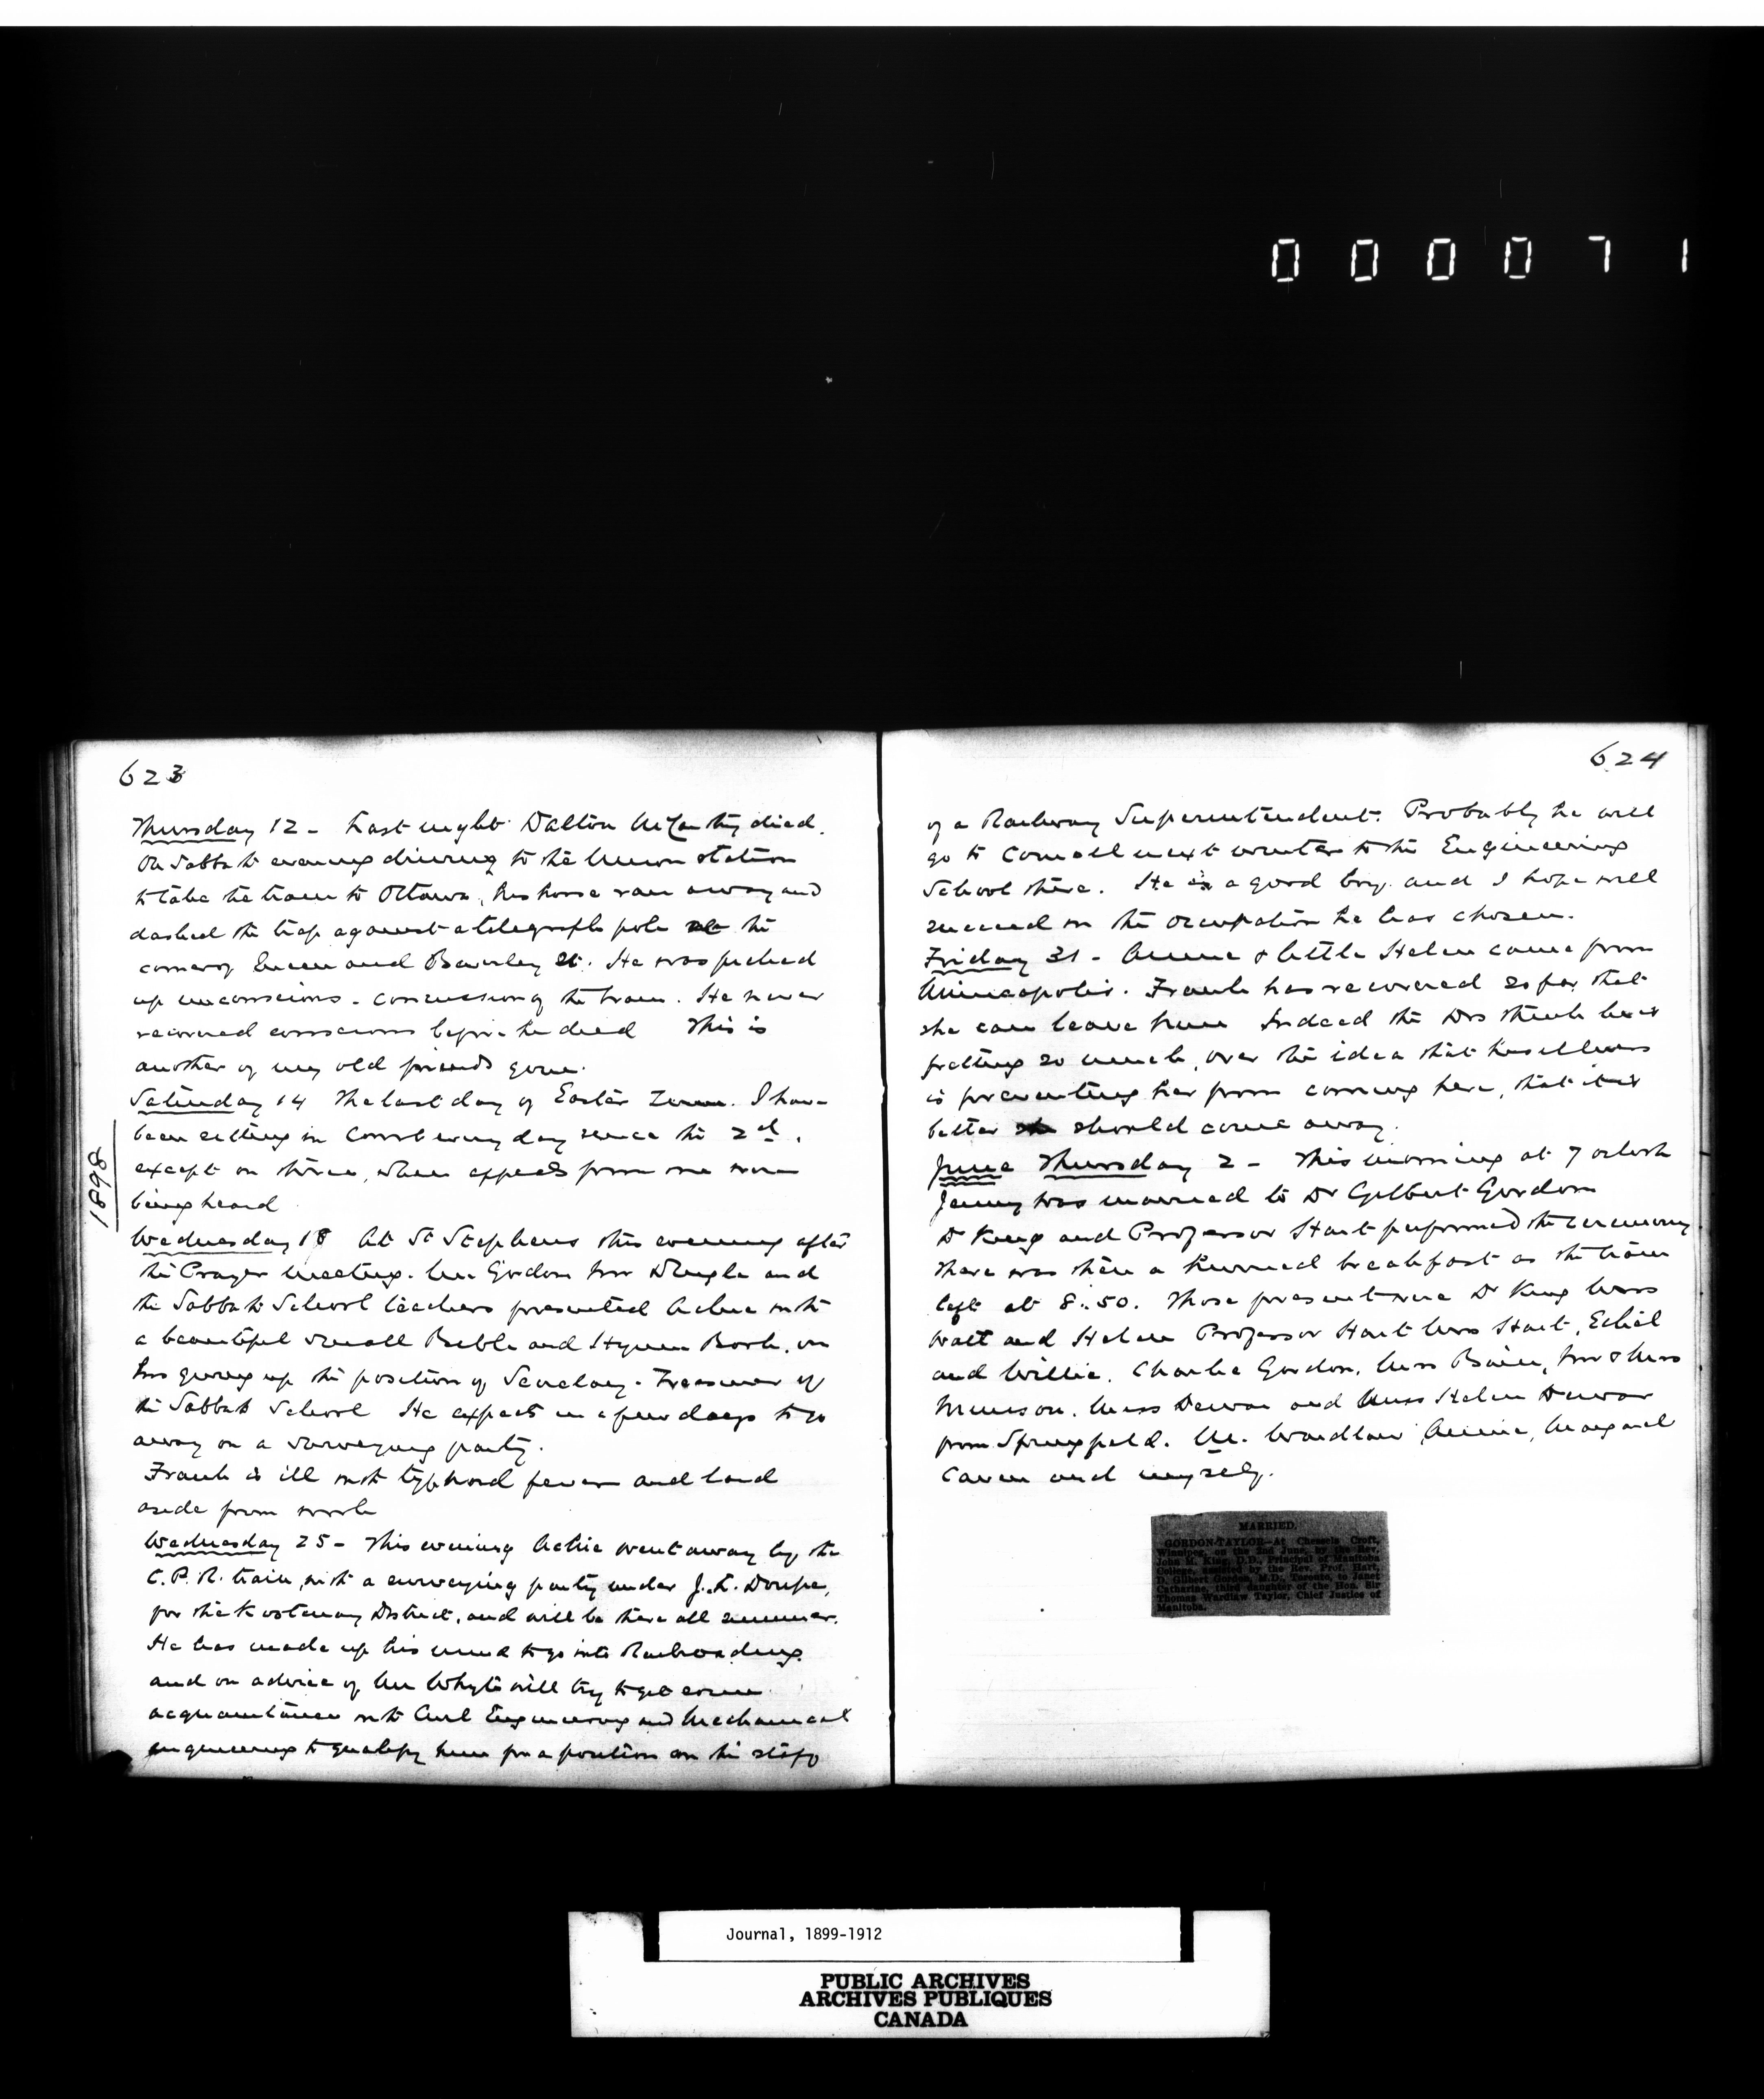 000071
623
Thursday 12 - Last night Dalton McCarthy died.
On Sabbath evening driving to the Union station
to take the train to Ottawa, his horse ran away and
dashed the trap against a telegraph pole at the
corner of Queen and Beverley St. He was picked
up unconscious - concussion of the brain. He never
recovered conscious before he died This is
another of my old friends gone.
Saturday 14 The last day of Easter Term. I have
been sitting in Court every day since the 2nd,
except on three, when appeals from me were
being heard
1898
Wednesday 18 At St Stephens this evening after
the Prayer meeting. Mr Gordon Mr and
the Sabbath School teachers presented Archie with
a beautiful small Bible and Hymn Book, on
his giving up the position of Secretary-Treasurer of
the Sabbath School He expects in a few days to go
away on a surveying party.
Frank is ill with typhoid fever and laid
aside from work
Wednesday 25 - This evening Archie went away by the
C.P.R. train, with a surveying party under J. L. Doupe,
for the Kootenay District, and will be there all summer.
He has made up his mind to go into Railroading
and on advice of Mr Whyte will try to get some
acquaintance with Civil Engineering and Mechanical
Engineering to qualify him for a position on the staff
624
of a Railway Superintendent. Probably he will
go to Cornell next winter to the Engineering
School there. He is a good boy and I hope will
succeed in the occupation he has chosen.
Friday 31 - Annie & little Helen came from
Minneapolis. Frank has recovered so far that
she can leave him Indeed the Drs think he is
fretting so much, over the idea that his illness
is preventing her from coming here, that it is
better she should come away.
June Thursday 2 - This morning at 7 oclock
Jenny was married to Dr Gilbert Gordon
Dr King and Professor Hart performed the ceremony
There was then a hurried breakfast as the train
left at 8.50. Those present were Dr King Miss
Watt and Helen Professor Hart Mrs Hart, Ethel
and Willie, Charlie Gordon, Mrs Bain, Mr & Mrs
Munson. Miss Dewar and Miss Helen Dewar
from Springfield. M. Wardlaw Annie, Margaret
Caven and myself.
MARRIED.
GORDON-TAYLOR—At Chessels Croft,
Winnipeg, on the 2nd June, by the Rev.
John M. King, D.D., Principal of Manitoba
College, assisted by the Rev. Prof. Hart,
D. Gilbert Gordon, M.D., Toronto, to Jane
Catharine, third daughter of the Hon. Sir
Thomas Wardlaw Taylor, Chief Justice of
Manitoba.
Journal, 1899-1912
PUBLIC ARCHIVES
ARCHIVES PUBLIQUES
CANADA